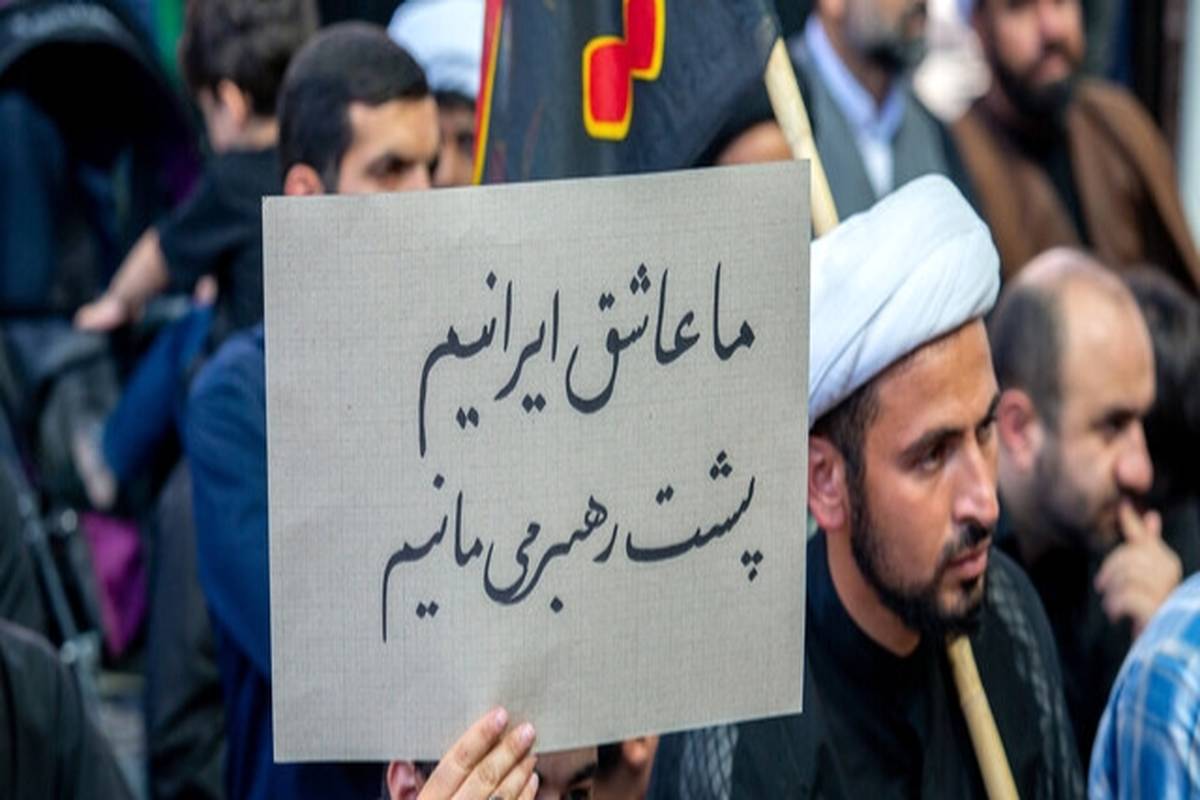 ما عاشق ایرانیم
پشت رهبر می مانیم